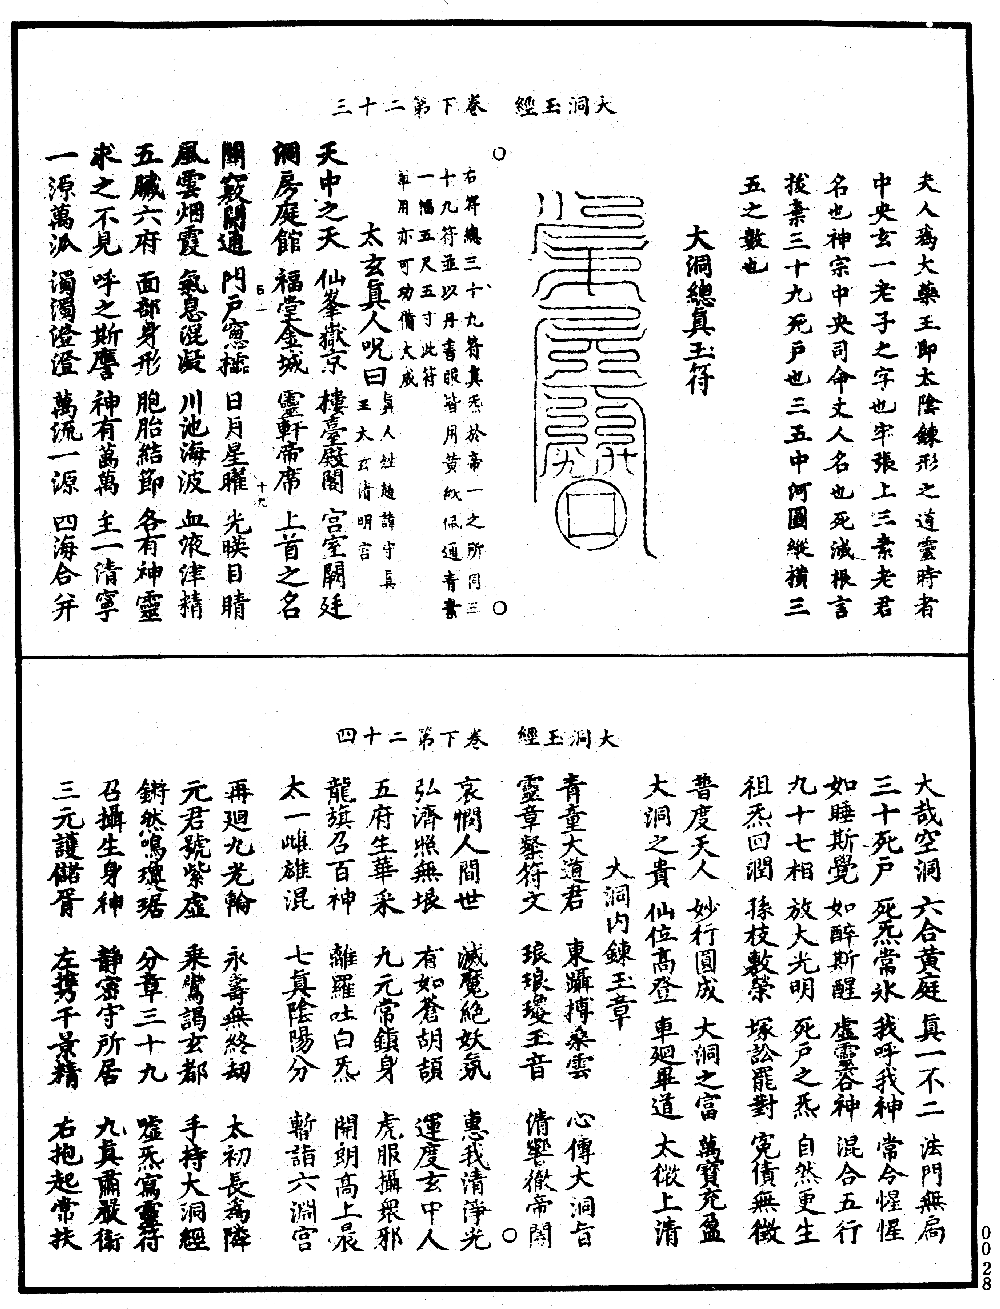 大洞玉經　卷下第二十三
夫人為大藥王即太陰鍊形之道靈時者
中央玄一老子之字也牢張上三素老君
名也神宗中央司命丈人名也死滅根言
拔棄三十九死戶也三五中河圖縱橫三
五之數也
大洞總真玉符
右符總三十九符真炁於帝一之所同三
十九符並以丹書服皆用黃紙佩通青素
一幅五尺五寸此符
單用亦可功備大成
太玄真人呪曰
真人姓趙諱守真
王大玄清明言
天中之天　仙峯嶽京　樓臺殿閣　宮室闕廷
洞房庭館　福堂金城　靈軒帝席　上首之名
關竅開通　門戶窓櫺　日月星曜　光暎目睛
風雲烟霞　氣息混凝　川池海波　血液津精
五臟六府　面部身形　胞胎結節　各有神靈
求之不見　呼之斯譍　神有萬萬　主一清寧
一源萬派　濁濁澄澄　萬流一源　四海合并
大洞玉經　卷下第二十四
大哉空洞　六合黃庭　真一不二　法門無扃
三十死戶　死炁常氷　我呼我神　常令惺惺
如睡斯覺　如醉斯醒　虛靈谷神　混合五行
九十七相　放大光明　死戶之炁　自然更生
祖炁回潤　孫枝敷榮　塚訟罷對　寃債無徵
普度天人　妙行圓成　大洞之富　萬寶充盈
大洞之貴　仙位高登　車廻畢道　太微上清
大洞內鍊玉章
青童大道君　東躡搏桑雲　心傳大洞旨
靈章粲符文　琅琅瓊玉音　脩響徹帝閽
哀憫人間世　滅魔絕妖氛　惠我清淨光
弘濟照無垠　有如蒼胡頡　運度玄中人
五府生華采　九元常鎮身　虎服攝眾邪
龍旗召百神　離羅吐白炁　開朗高上晨
太一雌雄混　七真陰陽分　暫詣六淵宮
再廻九光輪　永壽無終劫　太初長為隣
元君號紫虛　乘鸞謁玄都　手持大洞經
鏘然鳴瓊琚　分章三十九　噓炁寫靈符
召攝生身神　靜室守所居　九真肅嚴衛
三元護儲胥　左攜千景精　右抱起常扶
0028